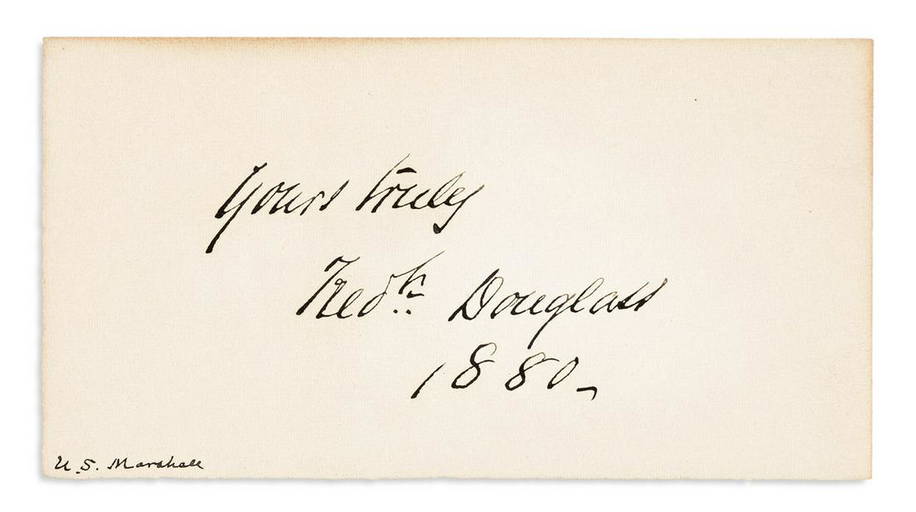 Yours truly
Fredk. Douglass
1880_
U.S. Marshall